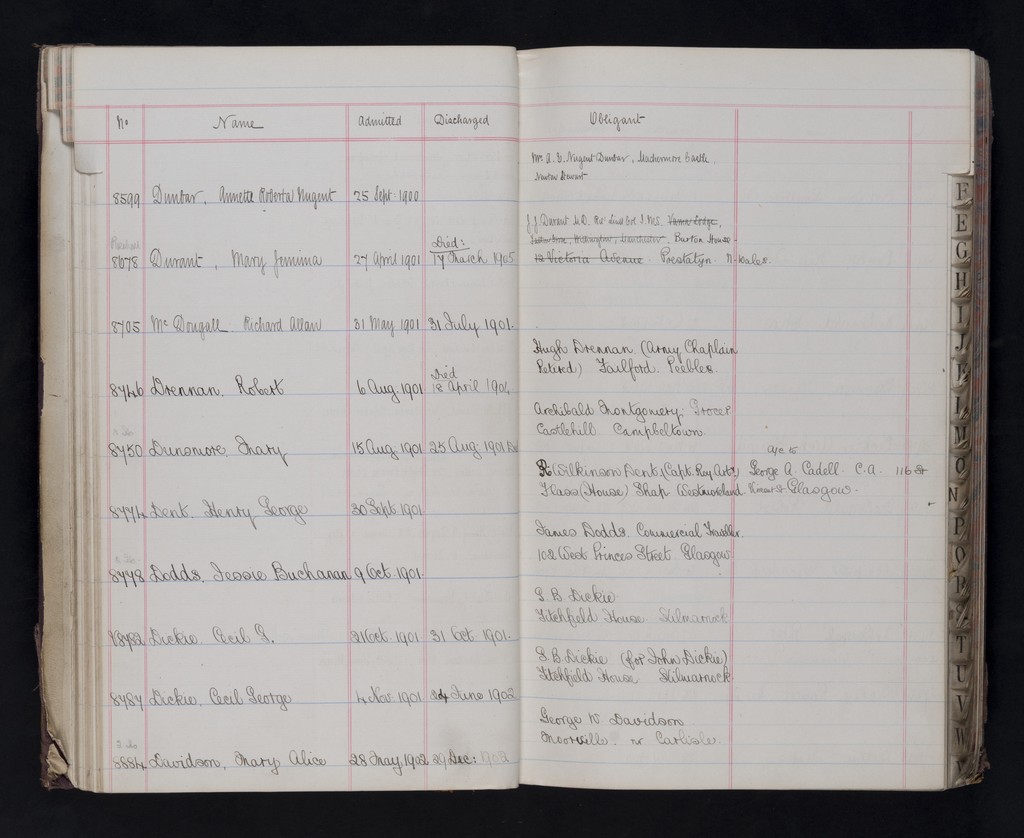 No Name Admitted Discharged Obligant
Mr. A. E. Nugent Dunbar, Machermore Castle,
Newton Stewart
8599 Dunbar, Annetta Roberta Nugent 25 Sept. 1900
J J Durant M.D. Lieut Col I.M.S.
Died: Burton House
8678 Durant, Mary Jemima 27 April 1901 17 March 1905 12 Victoria Avenue Prestatyn N. Wales
8705 McDougall Richard Allan 31 May 1901 31 July 1901.
Hugh Drennan (Army Chaplain
Died Retired) Failford. Peebles.
8746 Drennan, Robert 6 Aug 1901 18 April 1904
Archibald Montgomery. Grocer
Castlehill Campbeltown.
8750 Dunsmore, Mary 15 Aug 1901 25 Aug 1901
a/c to
Wilkinson Dent, (Capt. Roy. Art.) George A. Cadell. C.A. 116 St
Flass (House) Shap Westmoreland. Vincent St Glasgow.
8774 Dent. Henry George 30 Sept 1901
James Dodds. Commercial Traveller.
102 West Princes Street Glasgow
8778 Dodds, Jessie Buchanan 9 Oct. 1901.
G. B. Dickie
Titchfield House. Kilmarnock
8782 Dickie Cecil G. 21 Oct. 1901 31 Oct. 1901.
G. B. Dickie (for John Dickie)
Titchfield House Kilmarnock.
8787 Dickie, Cecil George 4 Nov. 1901 24 June 1902
George W. Davidson
Moorville. nr Carlisle.
8884 Davidson, Mary Alice 28 May 1902 29 Dec: 1902
F
E
G
H
I
J
K
L
M
O
N
P
Q
R
S
T
U
V
W